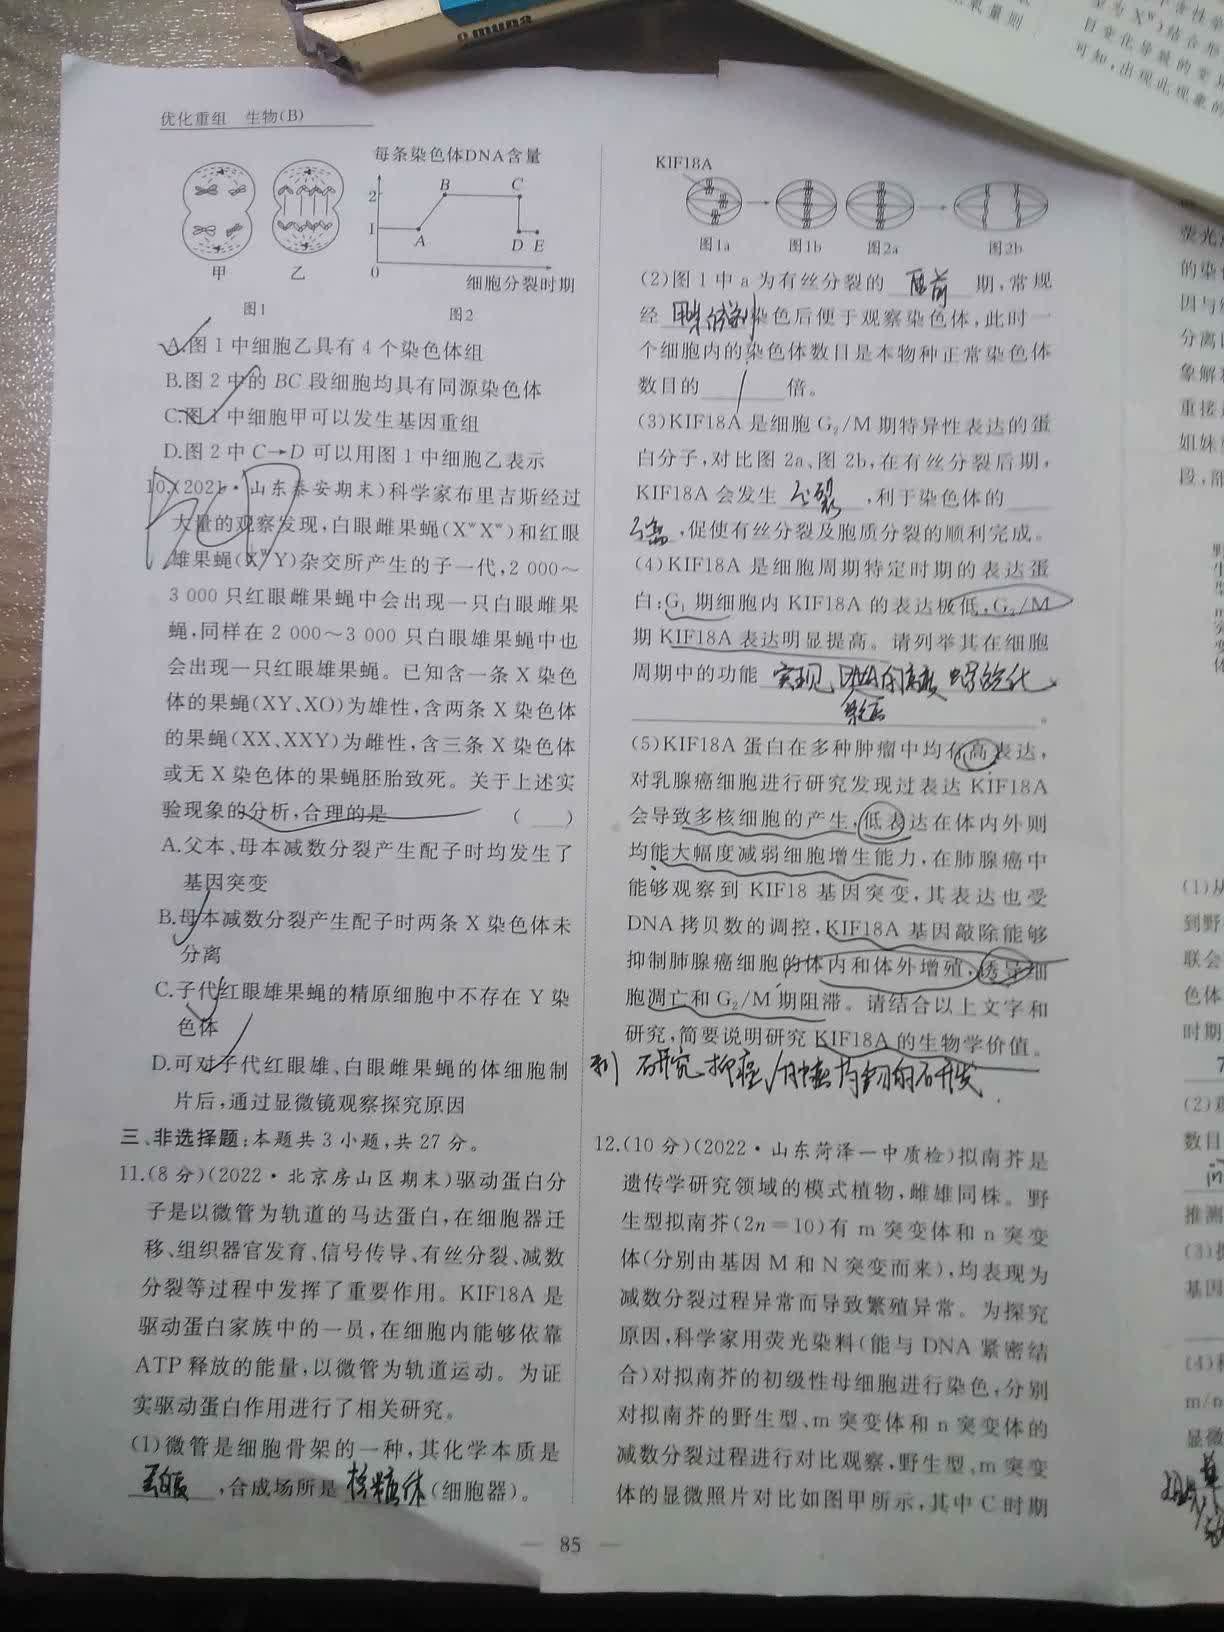 优化重组 生物(B)
每条染色体DNA含量
2
B
C
1
A
D E
0
细胞分裂时期
甲
乙
图1
图2
A.图1中细胞乙具有4个染色体组
B.图2中的BC段细胞均具有同源染色体
C.图1中细胞甲可以发生基因重组
D.图2中C→D可以用图1中细胞乙表示
10.(2021·山东泰安期末)科学家布里吉斯经过
大量的观察发现,白眼雌果蝇(XʷXʷ)和红眼
雄果蝇(XᵂY)杂交所产生的子一代,2 000～
3 000只红眼雌果蝇中会出现一只白眼雌果
蝇,同样在2 000～3 000只白眼雄果蝇中也
会出现一只红眼雄果蝇。已知含一条X染色
体的果蝇(XY、XO)为雄性,含两条X染色体
的果蝇(XX、XXY)为雌性,含三条X染色体
或无X染色体的果蝇胚胎致死。关于上述实
验现象的分析,合理的是 ( )
A.父本、母本减数分裂产生配子时均发生了
基因突变
B.母本减数分裂产生配子时两条X染色体未
分离
C.子代红眼雄果蝇的精原细胞中不存在Y染
色体
D.可对子代红眼雄、白眼雌果蝇的体细胞制
片后,通过显微镜观察探究原因
三、非选择题:本题共3小题,共27分。
11.(8分)(2022·北京房山区期末)驱动蛋白分
子是以微管为轨道的马达蛋白,在细胞器迁
移、组织器官发育、信号传导、有丝分裂、减数
分裂等过程中发挥了重要作用。KIF18A是
驱动蛋白家族中的一员,在细胞内能够依靠
ATP释放的能量,以微管为轨道运动。为证
实驱动蛋白作用进行了相关研究。
(1)微管是细胞骨架的一种,其化学本质是
蛋白质,合成场所是核糖体(细胞器)。
KIF18A
图1a
图1b
图2a
图2b
(2)图1中a为有丝分裂的 前 期,常规
经 染色后便于观察染色体,此时一
个细胞内的染色体数目是本物种正常染色体
数目的 1 倍。
(3)KIF18A是细胞G₂/M期特异性表达的蛋
白分子,对比图2a、图2b,在有丝分裂后期,
KIF18A会发生 分裂 ,利于染色体的
分离,促使有丝分裂及胞质分裂的顺利完成。
(4)KIF18A是细胞周期特定时期的表达蛋
白:G₁期细胞内KIF18A的表达极低,G₂/M
期KIF18A表达明显提高。请列举其在细胞
周期中的功能 实现DNA的高度螺旋化
。
(5)KIF18A蛋白在多种肿瘤中均有高表达,
对乳腺癌细胞进行研究发现过表达KIF18A
会导致多核细胞的产生,低表达在体内外则
均能大幅度减弱细胞增生能力,在肺腺癌中
能够观察到KIF18基因突变,其表达也受
DNA拷贝数的调控,KIF18A基因敲除能够
抑制肺腺癌细胞的体内和体外增殖,诱导细
胞凋亡和G₂/M期阻滞。请结合以上文字和
研究,简要说明研究KIF18A的生物学价值。
利 研究抑癌/肿瘤 药物的研发
12.(10分)(2022·山东菏泽一中质检)拟南芥是
遗传学研究领域的模式植物,雌雄同株。野
生型拟南芥(2n=10)有m突变体和n突变
体(分别由基因M和N突变而来),均表现为
减数分裂过程异常而导致繁殖异常。为探究
原因,科学家用荧光染料(能与DNA紧密结
合)对拟南芥的初级性母细胞进行染色,分别
对拟南芥的野生型、m突变体和n突变体的
减数分裂过程进行对比观察,野生型、m突变
体的显微照片对比如图甲所示,其中C时期
85
氧量则
型为Xᵂ)结合形
目变化导致的变异
可知,出现此现象的
荧光
的染
因与
分离
象解
重接
姐妹
段,
(1)从
到野
联会
色体
时期
(2)
数目
推测
(3)
基因
(4)
m/n
显微